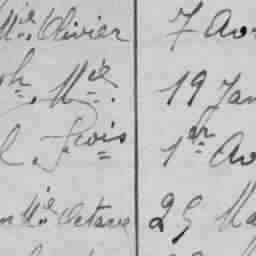 Mie Olivier 7 Avr
ph. Mie. 19 Jan
l. Frois 1er Av
n Mie Octave 25 Ma